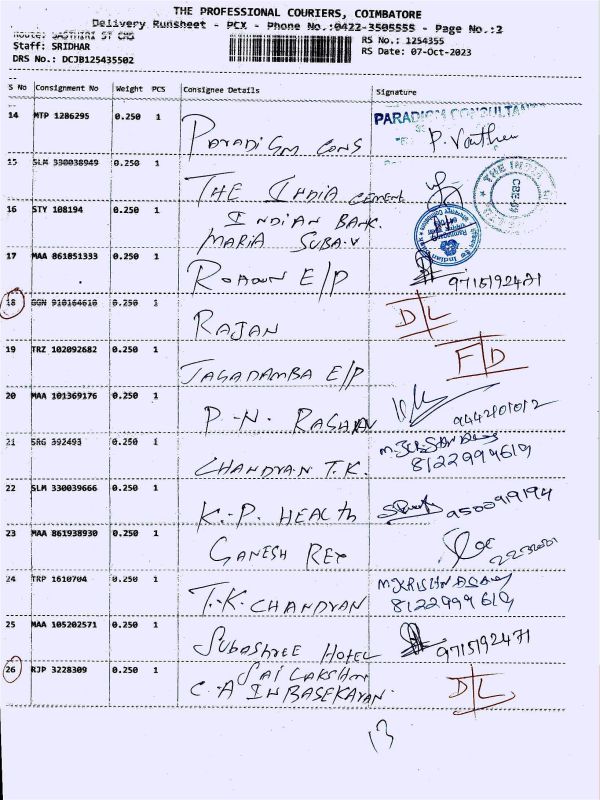 THE PROFESSIONAL COURIERS, COIMBATORE
Delivery Runsheet - PCX - Phone No.:0422-3505555 - Page No.:2
Route: SASTHIRI ST CBS
Staff: SRIDHAR
DRS No.: DCJB125435502
RS No.: 1254355
RS Date: 07-Oct-2023
S No Consignment No Weight PCS Consignee Details Signature
14 MTP 1286295 0.250 1 PARADIGM CONS PARADIGM CONSULTAN
15 SLM 330038949 0.250 1 THE INDIA CEMENT THE INDIA
16 STY 108194 0.250 1 INDIAN BANK.
MARIA SUBA.V
17 MAA 861851333 0.250 1 E/P 9715192471
18 GGN 910164610 0.250 1 RAJAN D/L
19 TRZ 102092682 0.250 1 JAGADAMBA E/P F/D
20 MAA 101369176 0.250 1 P.N. RAGHAV
21 SRG 392493 0.250 1 CHANDRAN T.K. 8122999619
22 SLM 330039666 0.250 1 K.P. HEALTH
23 MAA 861938930 0.250 1 GANESH REX
24 TRP 1610704 0.250 1 T.K. CHANDRAN 8122999619
25 MAA 105202571 0.250 1 SUBASHREE HOTEL 9715192471
26 RJP 3228309 0.250 1 SAI LAKSHMI
C.A INBASEKARAN. D/L
13